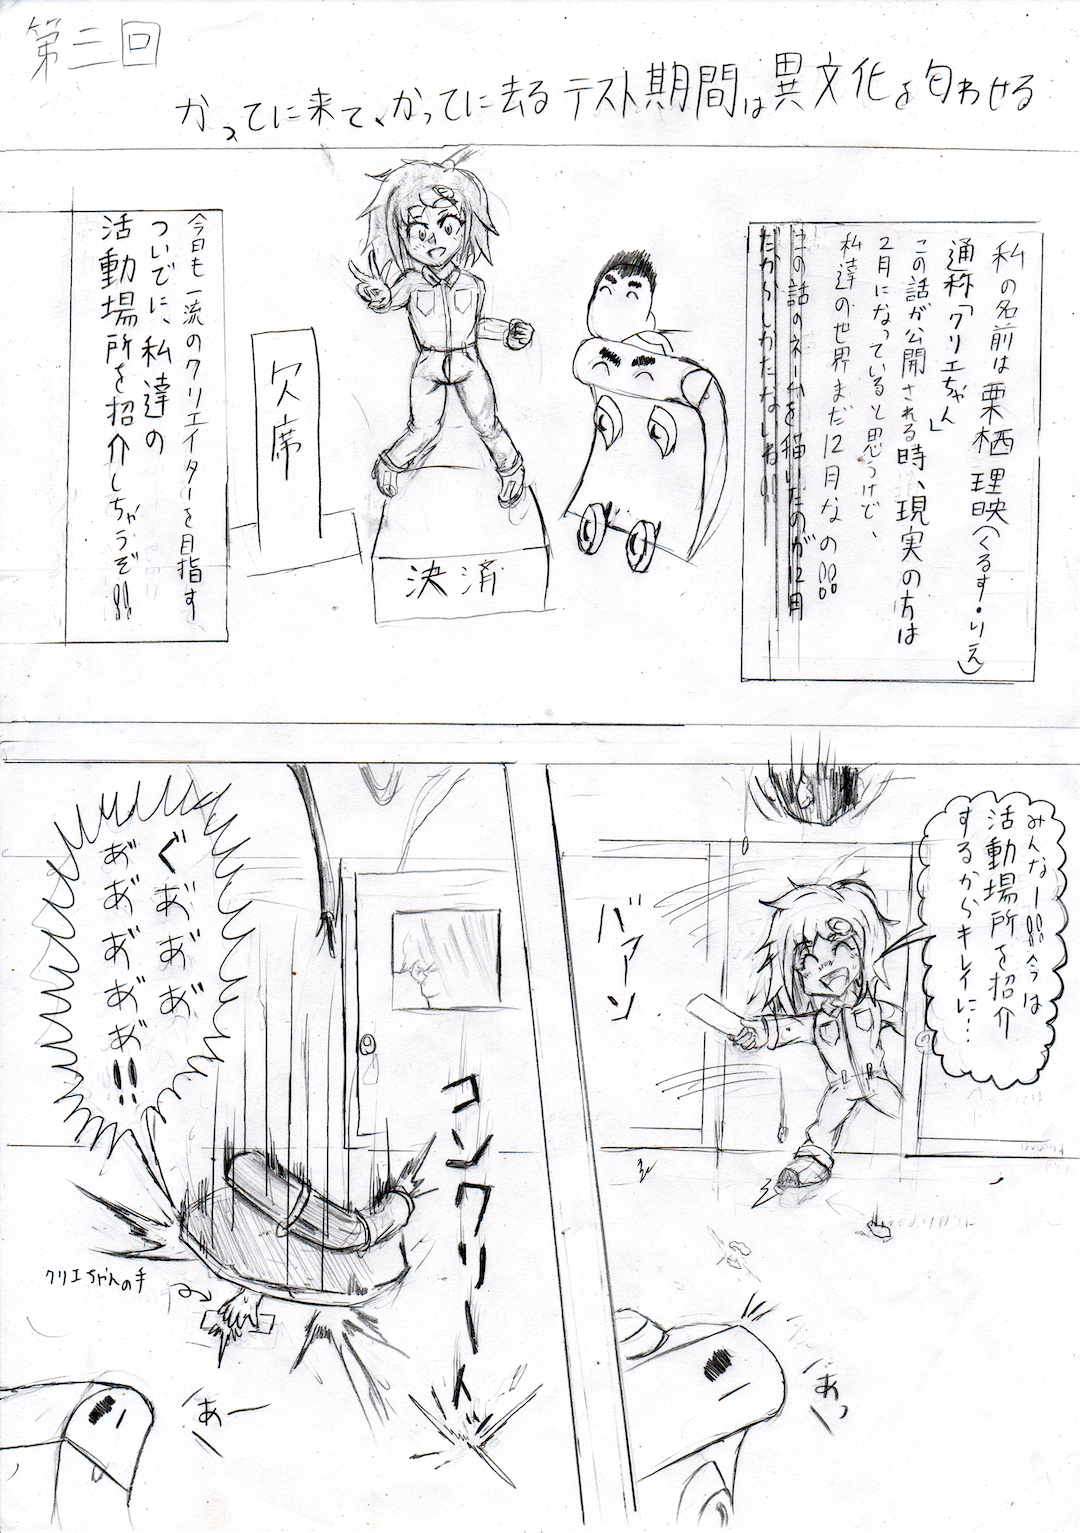 第三回
かってに来て、かってに去るテスト期間は異文化を匂わせる
私の名前は栗栖理映(くるす・りえ)
通称「クリエちゃん」
この話が公開される時、現実の方は
2月になっていると思うけど、
私達の世界まだ12月なの!!!
この話のネームを描いたのが12月
だからしかたないね!!
決済
欠席
今日も一流のクリエイターを目指す
ついでに、私達の
活動場所を紹介しちゃうぞ!!
みんなー!!!今は
活動場所を紹介
するからキレイに…
バァーン
あっ
ぐあ゛あ゛あ゛
あ゛あ゛あ゛あ゛あ゛!!
コンクリートイ
クリエちゃんの手
あー